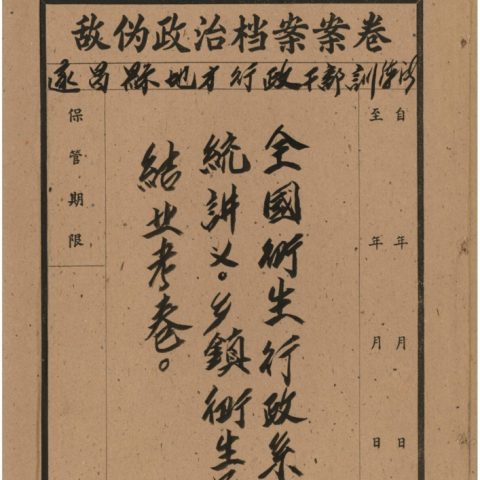 敌伪政治档案案卷
遂昌縣地方行政干部訓
自 年 月 日
至 年 月 日
全國衛生行政系
統講义。乡鎮衛生
結业考卷。
保管期限